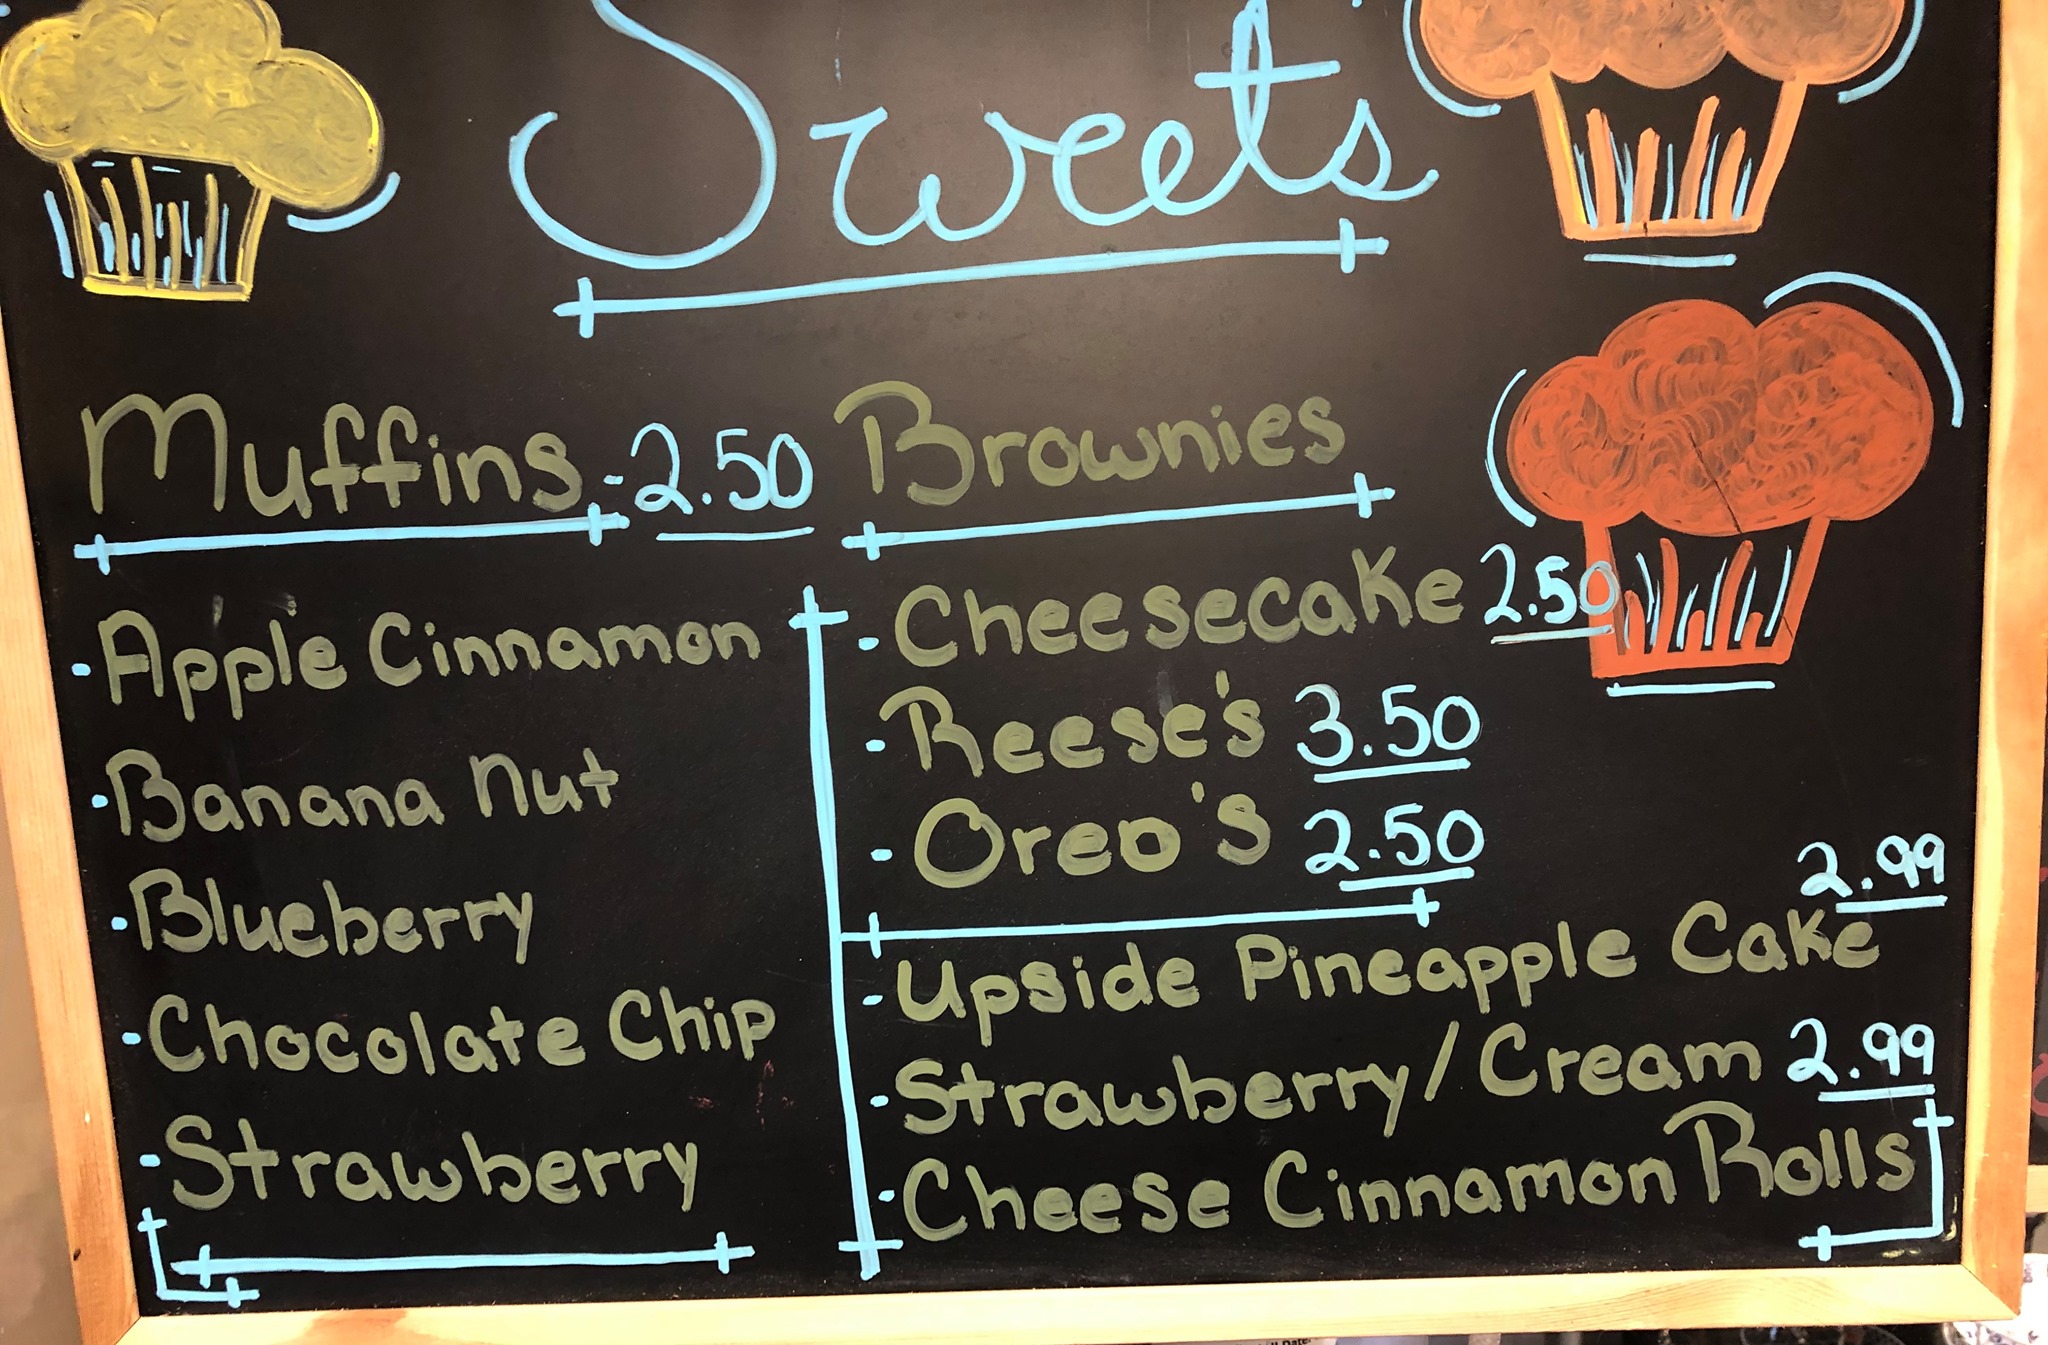 Sweets
Muffins -2.50
- Apple Cinnamon
- Banana Nut
- Blueberry
- Chocolate Chip
- Strawberry
Brownies
- Cheesecake 2.50
- Reese's 3.50
- Oreo's 2.50
2.99
- Upside Pineapple Cake
- Strawberry/Cream 2.99
- Cheese Cinnamon Rolls